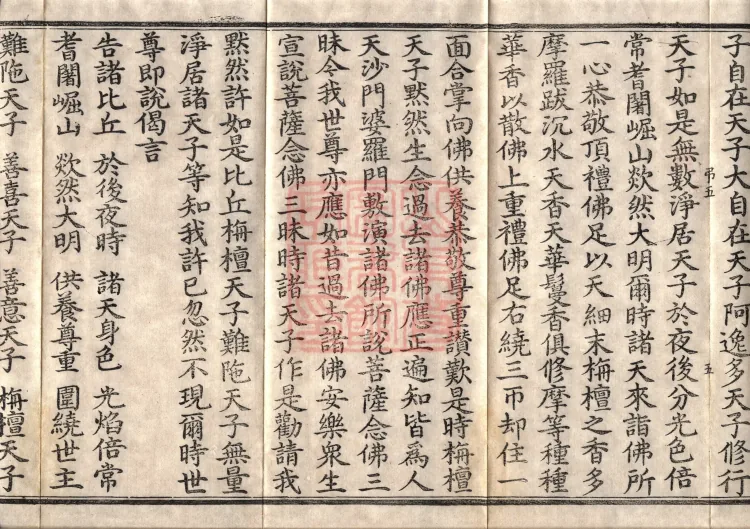 子自在天子大自在天子阿逸多天子修行
天子如是無數淨居天子於夜後分光色倍
常耆闍崛山欻然大明爾時諸天來詣佛所
一心恭敬頂禮佛足以天細末栴檀之香多
摩羅跋沉水天香天華鬘香俱修摩等種種
華香以散佛上重禮佛足右繞三帀却住一
面合掌向佛供養恭敬尊重讚歎是時栴檀
天子默然生念過去諸佛應正遍知皆爲人
天沙門婆羅門敷演諸佛所說菩薩念佛三
昧今我世尊亦應如昔過去諸佛安樂衆生
宣說菩薩念佛三昧時諸天子作是勸請我
默然許如是比丘栴檀天子難陁天子無量
淨居諸天子等知我許已忽然不現爾時世
尊即說偈言
告諸比丘 於後夜時 諸天身色 光焰倍常
耆闍崛山 欻然大明 供養尊重 圍繞世主
難陁天子 善喜天子 善意天子 栴檀天子
五